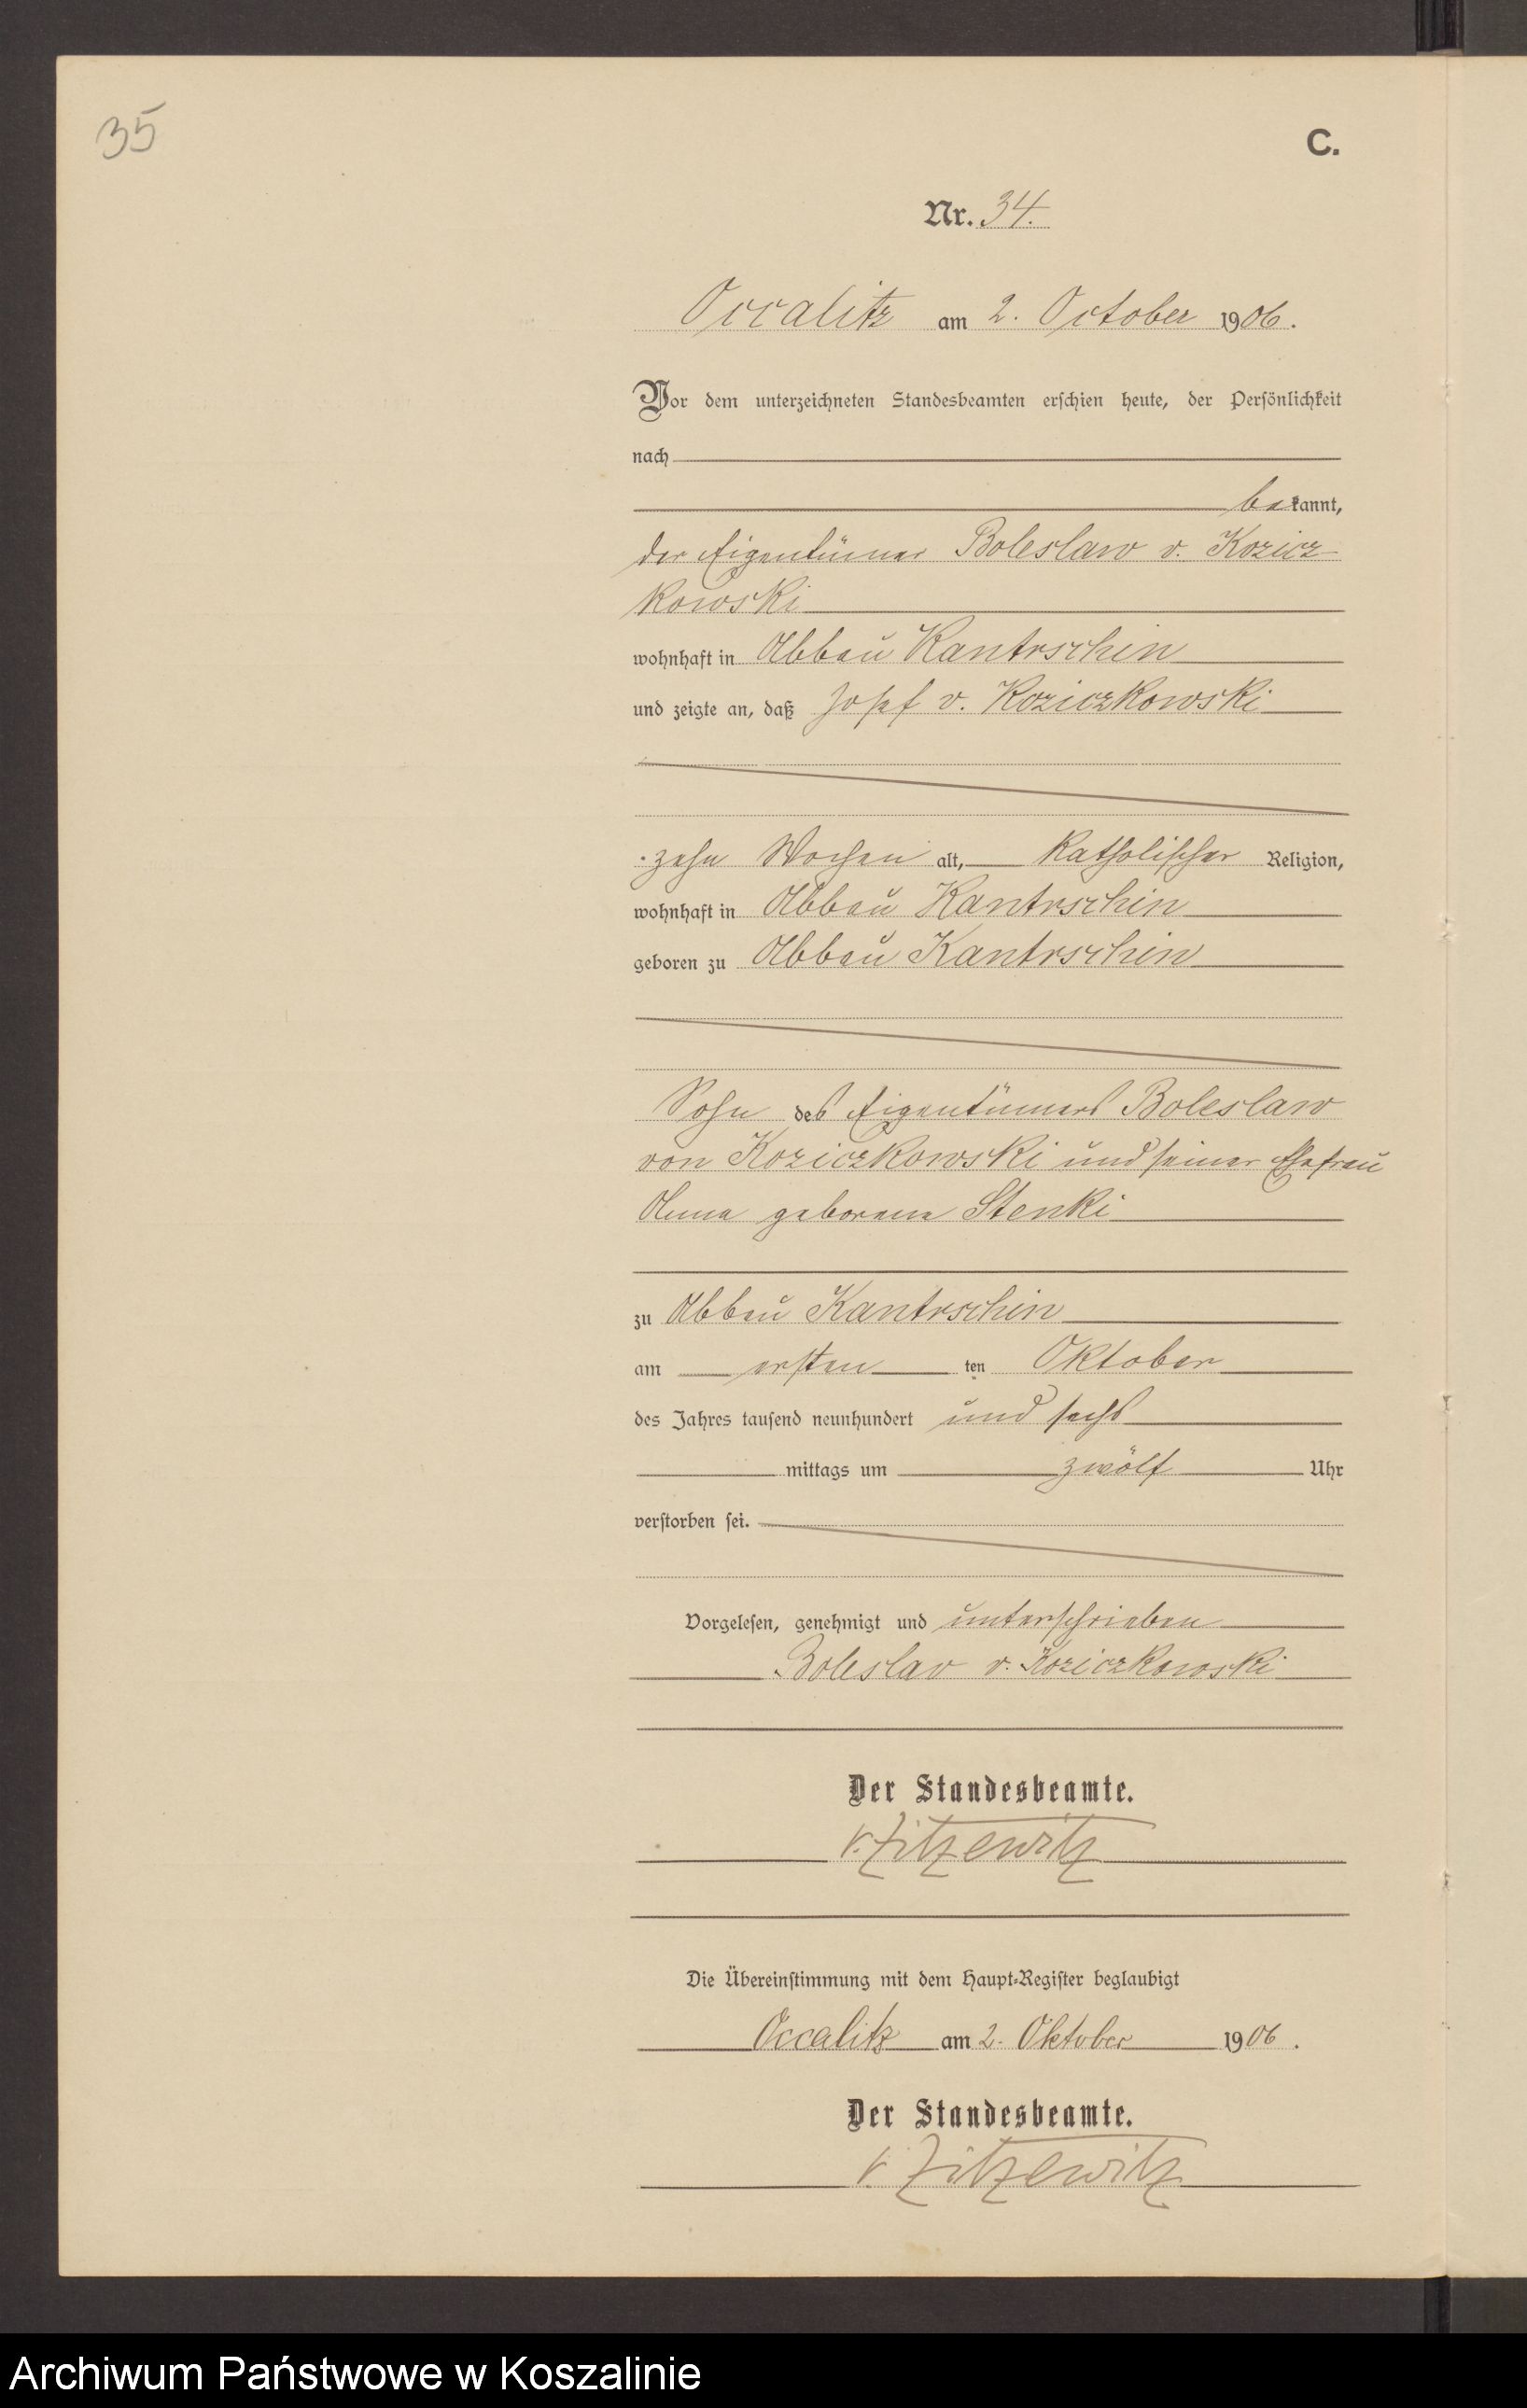 35
C.
Nr. 34.
Occalitz am 2. October 1906.
Vor dem unterzeichneten Standesbeamten erschien heute, der Persönlichkeit
nach
bekannt,
der Eigentümer Boleslaw v. Kozicz-
kowski
wohnhaft in Abbau Kantrschin
und zeigte an, daß Josef v. Koziczkowski
zehn Wochen alt, katholischer Religion,
wohnhaft in Abbau Kantrschin
geboren zu Abbau Kantrschin
Sohn des Eigentümers Boleslaw
von Koziczkowski und seiner Ehefrau
Anna geborene Stenki
zu Abbau Kantrschin
am ersten ten Oktober
des Jahres tausend neunhundert und sechs
mittags um zwölf Uhr
verstorben sei.
Vorgelesen, genehmigt und unterschrieben
Boleslav v. Koziczkowski
Der Standesbeamte.
v. Zitzewitz
Die Übereinstimmung mit dem Haupt-Register beglaubigt
Occalitz am 2. Oktober 1906.
Der Standesbeamte.
v. Zitzewitz
Archiwum Państwowe w Koszalinie